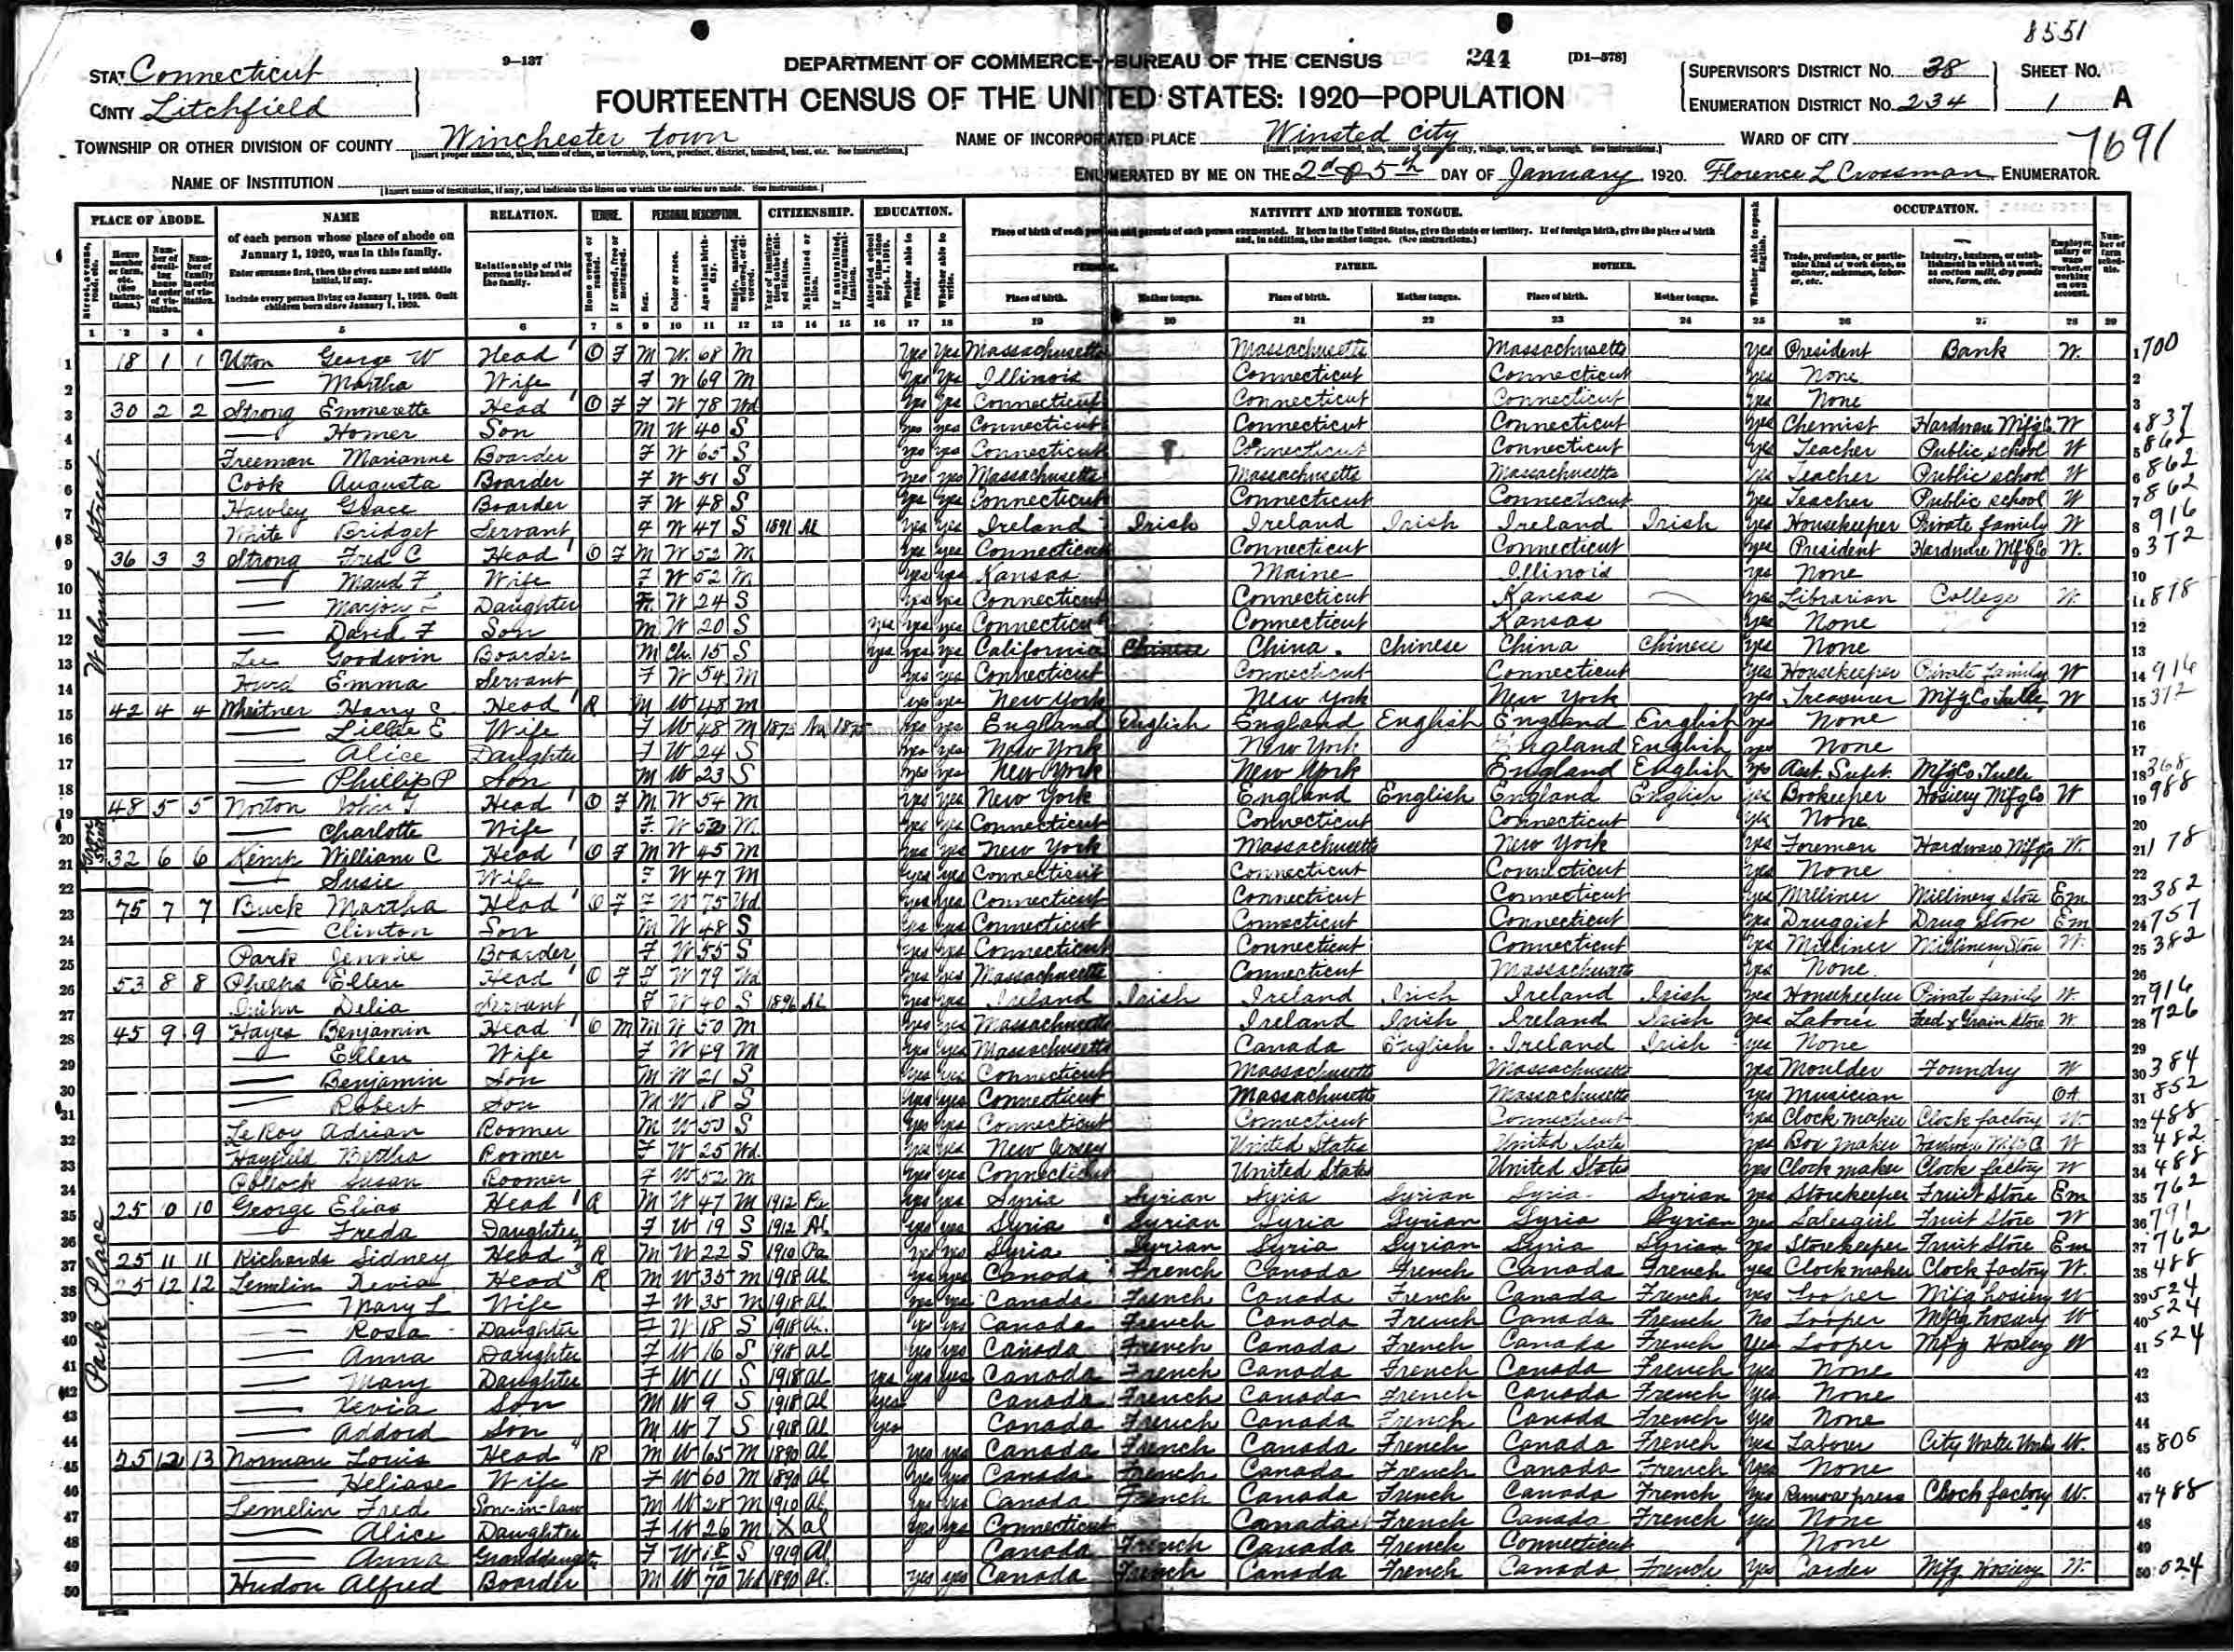 8551
9—137
DEPARTMENT OF COMMERCE—BUREAU OF THE CENSUS 244 [D1—578]
STATE Connecticut
COUNTY Litchfield
FOURTEENTH CENSUS OF THE UNITED STATES: 1920—POPULATION
SUPERVISOR'S DISTRICT NO. 38 SHEET NO.
ENUMERATION DISTRICT NO. 234 1 A
TOWNSHIP OR OTHER DIVISION OF COUNTY Winchester town NAME OF INCORPORATED PLACE Winsted city WARD OF CITY
7691
NAME OF INSTITUTION ENUMERATED BY ME ON THE 2d & 5th DAY OF January, 1920. Florence L Crossman ENUMERATOR.
PLACE OF ABODE. NAME RELATION. TENURE. PERSONAL DESCRIPTION. CITIZENSHIP. EDUCATION. NATIVITY AND MOTHER TONGUE. OCCUPATION.
of each person whose place of abode on January 1, 1920, was in this family.
Enter surname first, then the given name and middle initial, if any.
Include every person living on January 1, 1920. Omit children born since January 1, 1920.
Relationship of this person to the head of the family.
PERSON. FATHER. MOTHER.
Place of birth. Mother tongue. Place of birth. Mother tongue. Place of birth. Mother tongue.
1 2 3 4 5 6 7 8 9 10 11 12 13 14 15 16 17 18 19 20 21 22 23 24 25 26 27 28 29
Walnut Street
1 18 1 1 Utton George W Head O F M W 68 M Yes Yes Massachusetts Massachusetts Massachusetts Yes President Bank W 1 700
2 — Martha Wife F W 69 M Yes Yes Illinois Connecticut Connecticut Yes None 2
3 30 2 2 Strong Emmerette Head O F F W 78 Wd Yes Yes Connecticut Connecticut Connecticut Yes None 3
4 — Homer Son M W 40 S Yes Yes Connecticut Connecticut Connecticut Yes Chemist Hardware Mfg Co W 4 837
5 Freeman Marianne Boarder F W 65 S Yes Yes Connecticut Connecticut Connecticut Yes Teacher Public school W 5 862
6 Cook Augusta Boarder F W 51 S Yes Yes Massachusetts Massachusetts Massachusetts Yes Teacher Public school W 6 862
7 Hawley Grace Boarder F W 48 S Yes Yes Connecticut Connecticut Connecticut Yes Teacher Public school W 7 862
8 White Bridget Servant F W 47 S 1891 Al Yes Yes Ireland Irish Ireland Irish Ireland Irish Yes Housekeeper Private family W 8 916
9 36 3 3 Strong Fred C Head O F M W 52 M Yes Yes Connecticut Connecticut Connecticut Yes President Hardware Mfg Co W 9 372
10 — Maud F Wife F W 52 M Yes Yes Kansas Maine Illinois Yes None 10
11 — Marjory L Daughter F W 24 S Yes Yes Connecticut Connecticut Kansas Yes Librarian College W 11 878
12 — David F Son M W 20 S Yes Yes Yes Connecticut Connecticut Kansas Yes None 12
13 Lee Goodwin Boarder M Ch 15 S Yes Yes Yes California Chinese China Chinese China Chinese Yes None 13
14 Hurd Emma Servant F W 54 M Yes Yes Connecticut Connecticut Connecticut Yes Housekeeper Private family W 14 916
15 42 4 4 Head R M W 48 M Yes Yes New York New York New York Yes Treasurer Mfg Co Tulle W 15 372
16 — Lillie E Wife F W 48 M Na Yes Yes England English England English England English Yes None 16
17 — Alice Daughter F W 24 S Yes Yes New York New York England English Yes None 17
18 — Phillip P Son M W 23 S Yes Yes New York New York England English Yes Asst. Supt. Mfg Co Tulle 18 368
19 48 5 5 Norton John Head O F M W 54 M Yes Yes New York England English England English Yes Bookeeper Hosiery Mfg Co W 19 988
20 — Charlotte Wife F W 52 M Yes Yes Connecticut Connecticut Connecticut Yes None 20
21 32 6 6 Kemp William C Head O F M W 45 M Yes Yes New York Massachusetts New York Yes Foreman Hardware Mfg Co W 21 178
22 — Susie Wife F W 47 M Yes Yes Connecticut Connecticut Connecticut Yes None 22
Park Place
23 75 7 7 Buck Martha Head O F F W 75 Wd Yes Yes Connecticut Connecticut Connecticut Yes Milliner Millinery Store Em 23 382
24 — Clinton Son M W 48 S Yes Yes Connecticut Connecticut Connecticut Yes Druggist Drug Store Em 24 757
25 Park Jennie Boarder F W 55 S Yes Yes Connecticut Connecticut Connecticut Yes Milliner Millinery Store W 25 382
26 53 8 8 Phelps Ellen Head O F F W 79 Wd Yes Yes Massachusetts Connecticut Massachusetts Yes None 26
27 Quinn Delia Servant F W 40 S 1896 Al Yes Yes Ireland Irish Ireland Irish Ireland Irish Yes Housekeeper Private family W 27 916
28 45 9 9 Hayes Benjamin Head O M M W 50 M Yes Yes Massachusetts Ireland Irish Ireland Irish Yes Laborer Feed & Grain Store W 28 726
29 — Ellen Wife F W 49 M Yes Yes Massachusetts Canada English Ireland Irish Yes None 29
30 — Benjamin Son M W 21 S Yes Yes Connecticut Massachusetts Massachusetts Yes Moulder Foundry W 30 384
31 — Robert Son M W 18 S Yes Yes Connecticut Massachusetts Massachusetts Yes Musician OA 31 852
32 LeRoy Adrian Roomer M W 50 S Yes Yes Connecticut Connecticut Connecticut Yes Clock maker Clock factory W 32 488
33 Hayfield Bertha Roomer F W 25 Wd Yes Yes New Jersey United States United States Yes Box maker W 33 482
34 Pollock Susan Roomer F W 52 M Yes Yes Connecticut United States United States Yes Clock maker Clock factory W 34 488
35 25 10 10 George Elias Head R M W 47 M 1912 Pa Yes Yes Syria Syrian Syria Syrian Syria Syrian Yes Storekeeper Fruit Store Em 35 762
36 — Freda Daughter F W 19 S 1912 Al Yes Yes Syria Syrian Syria Syrian Syria Syrian Yes Salesgirl Fruit Store W 36 791
37 25 11 11 Richards Sidney Head R M W 22 S 1910 Pa Yes Yes Syria Syrian Syria Syrian Syria Syrian Yes Storekeeper Fruit Store Em 37 762
38 25 12 12 Lemelin Head R M W 35 M 1918 Al Yes Yes Canada French Canada French Canada French Yes Clock maker Clock factory W 38 488
39 — Mary L Wife F W 35 M 1918 Al Yes Yes Canada French Canada French Canada French Yes Looper Mfg hosiery W 39 524
40 — Rosa Daughter F W 18 S 1918 Al Yes Yes Canada French Canada French Canada French No Looper Mfg hosiery W 40 524
41 — Anna Daughter F W 16 S 1918 Al Yes Yes Canada French Canada French Canada French Yes Looper Mfg Hosiery W 41 524
42 — Mary Daughter F W 11 S 1918 Al Yes Yes Yes Canada French Canada French Canada French Yes None 42
43 — Son M W 9 S 1918 Al Yes Canada French Canada French Canada French Yes None 43
44 — Addord Son M W 7 S 1918 Al Yes Canada French Canada French Canada French Yes None 44
45 25 12 13 Norman Louis Head R M W 65 M 1890 Al Yes Yes Canada French Canada French Canada French Yes Laborer City Water Works W 45 806
46 — Heliase Wife F W 60 M 1890 Al Yes Yes Canada French Canada French Canada French Yes None 46
47 Lemelin Fred Son-in-law M W 28 M 1910 Al Yes Yes Canada French Canada French Canada French Yes press Clock factory W 47 488
48 — Alice Daughter F W 26 M X Al Yes Yes Connecticut Canada French Canada French Yes None 48
49 — Anna Granddaughter F W S 1919 Al Canada French Canada French Connecticut None 49
50 Hudon Alfred Boarder M W 70 Wd 1890 Al Yes Yes Canada French Canada French Canada French Yes Carder Mfg Hosiery W 50 524